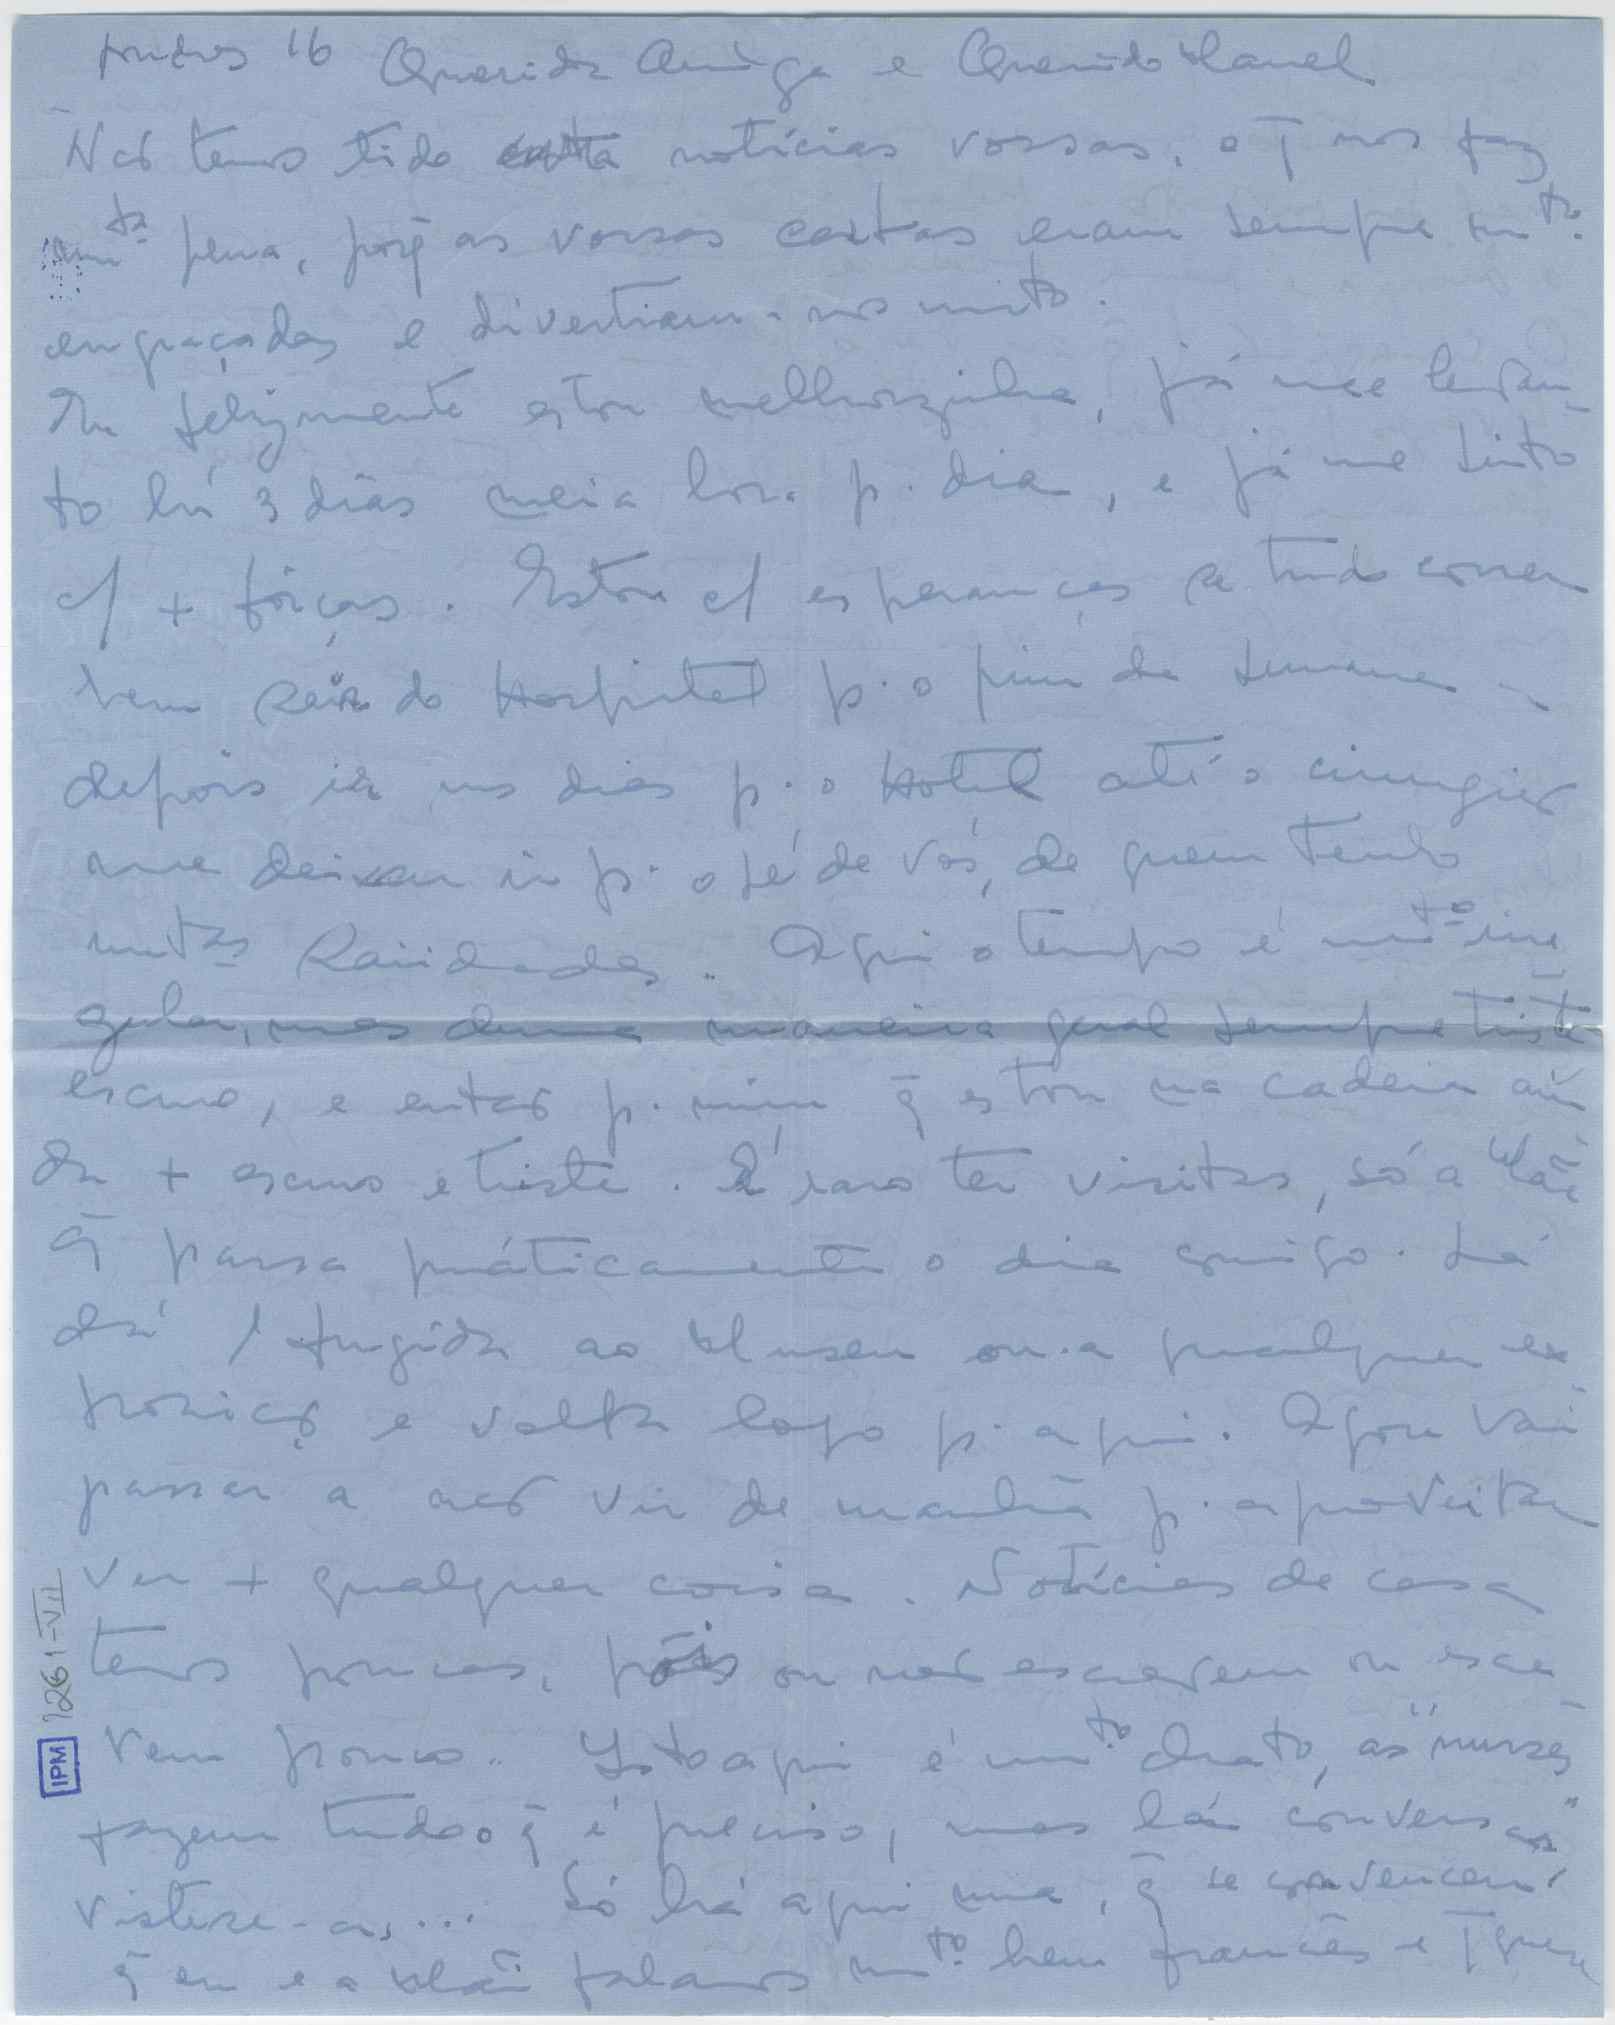 Londres 16 Querida Amiga e Querido Manel
Não temos tido notícias vossas, o q̄ nos faz
mta pena, porq̄ as vossas cartas eram sempre mto.
engraçadas e divertiam-nos muito.
Eu felizmente estou melhorzinha, já me levan-
to há 3 dias meia hora p. dia, e já me sinto
c/ + fôrças. Estou c/ esperanças se tudo correr
bem sair do Hospital p. o fim da semana
depois ir uns dias p. o Hotel até o cirurgião
me deixar ir p. o pé de vós, de quem tenho
muitas saudades.. Aqui o tempo é mto irre
gular, mas duma maneira geral sempre triste
escuro, e então p. mim q̄ estou na cadeia ain
da + escuro e triste. É raro ter visitas, só a Mãe
q̄ passa práticamente o dia comigo. Lá
dá 1 fugida ao Museu ou a qualquer ex
posição e volta logo p. aqui. Agora vai
passar a não vir de manhã p. aproveitar
ver + qualquer coisa. Notícias de casa
temos poucas, pois ou não escrevem ou escre
vem pouco.. Isto aqui é mto. chato, as "nurses"
fazem tudo o q̄ é preciso, mas lá conversas
viste-as,... Só há aqui uma, q̄ se convenceu
q̄ eu e a Mãe falamos mto. bem francês e q̄ quer
IPM 1261-VII